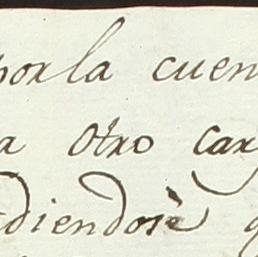 por la cuen
a otro car
diendosè